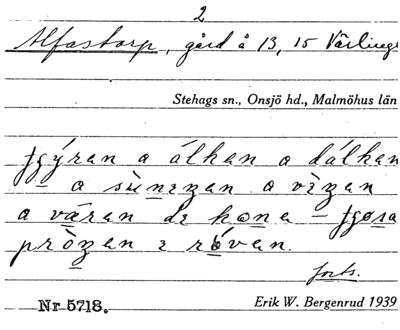 2
Alfastorp, gård å 13, 15 Värlinge
Stehags sn., Onsjö hd., Malmöhus län
jgýran a álhan a dálhan
a sùnezan a vèzan
a váran de kona – jgosa
pròzan e róvan.
forts.
Nr 5718.
Erik W. Bergenrud 1939